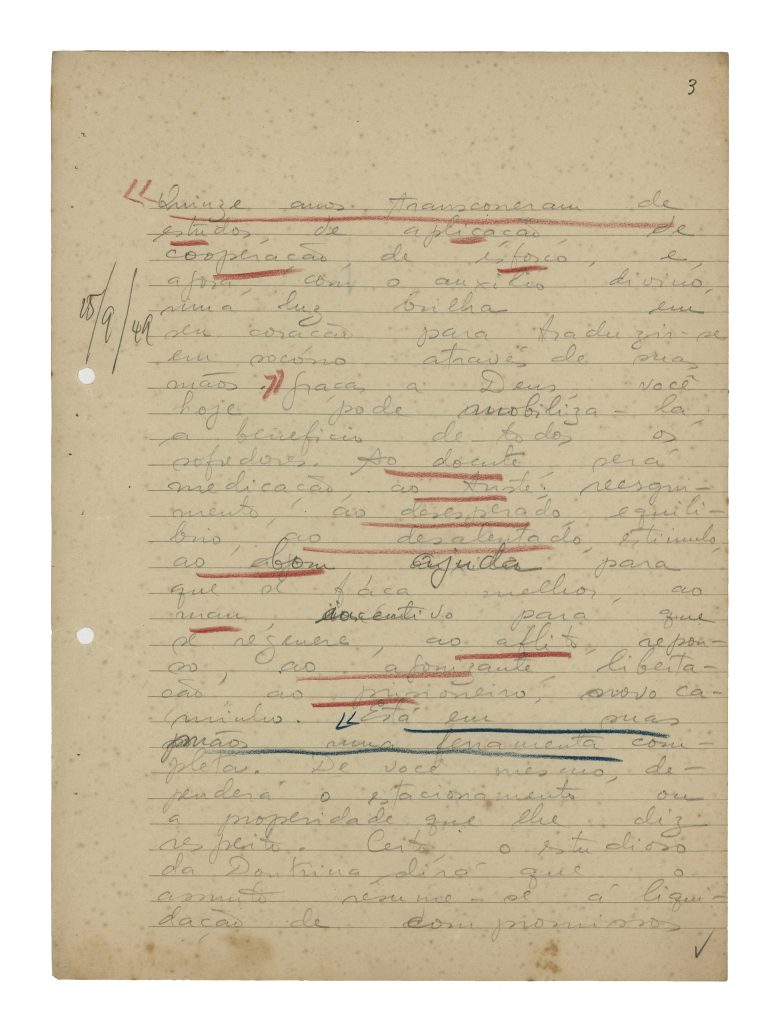 3
« Quinze anos transcorreram de
estudos, de aplicação, de
cooperação, de esforço, e,
agora, com o auxílio divino,
uma luz brilha em
seu coração para traduzir-se
em socorro através de suas
mãos. » Graças a Deus, você
hoje pode mobiliza-la
a benefício de todos os
sofredores. Ao doente, será
medicação, ao triste, reergui-
mento, ao desesperado, equilí-
brio, ao desalentado, estímulo,
ao bom, ajuda para
que se faça melhor, ao
mau, incentivo para que
se regenere, ao aflito, repou-
so, ao agonizante, liberta-
ção, ao prisioneiro, novo ca-
minho. « Está em suas
mãos uma ferramenta com-
pleta. De você mesmo, de-
penderá o estacionamento ou
a properidade que lhe diz
respeito. Certo, o estudioso
da Doutrina dirá que o
assunto resume-se á liqui-
dação de compromissos
15/9/49